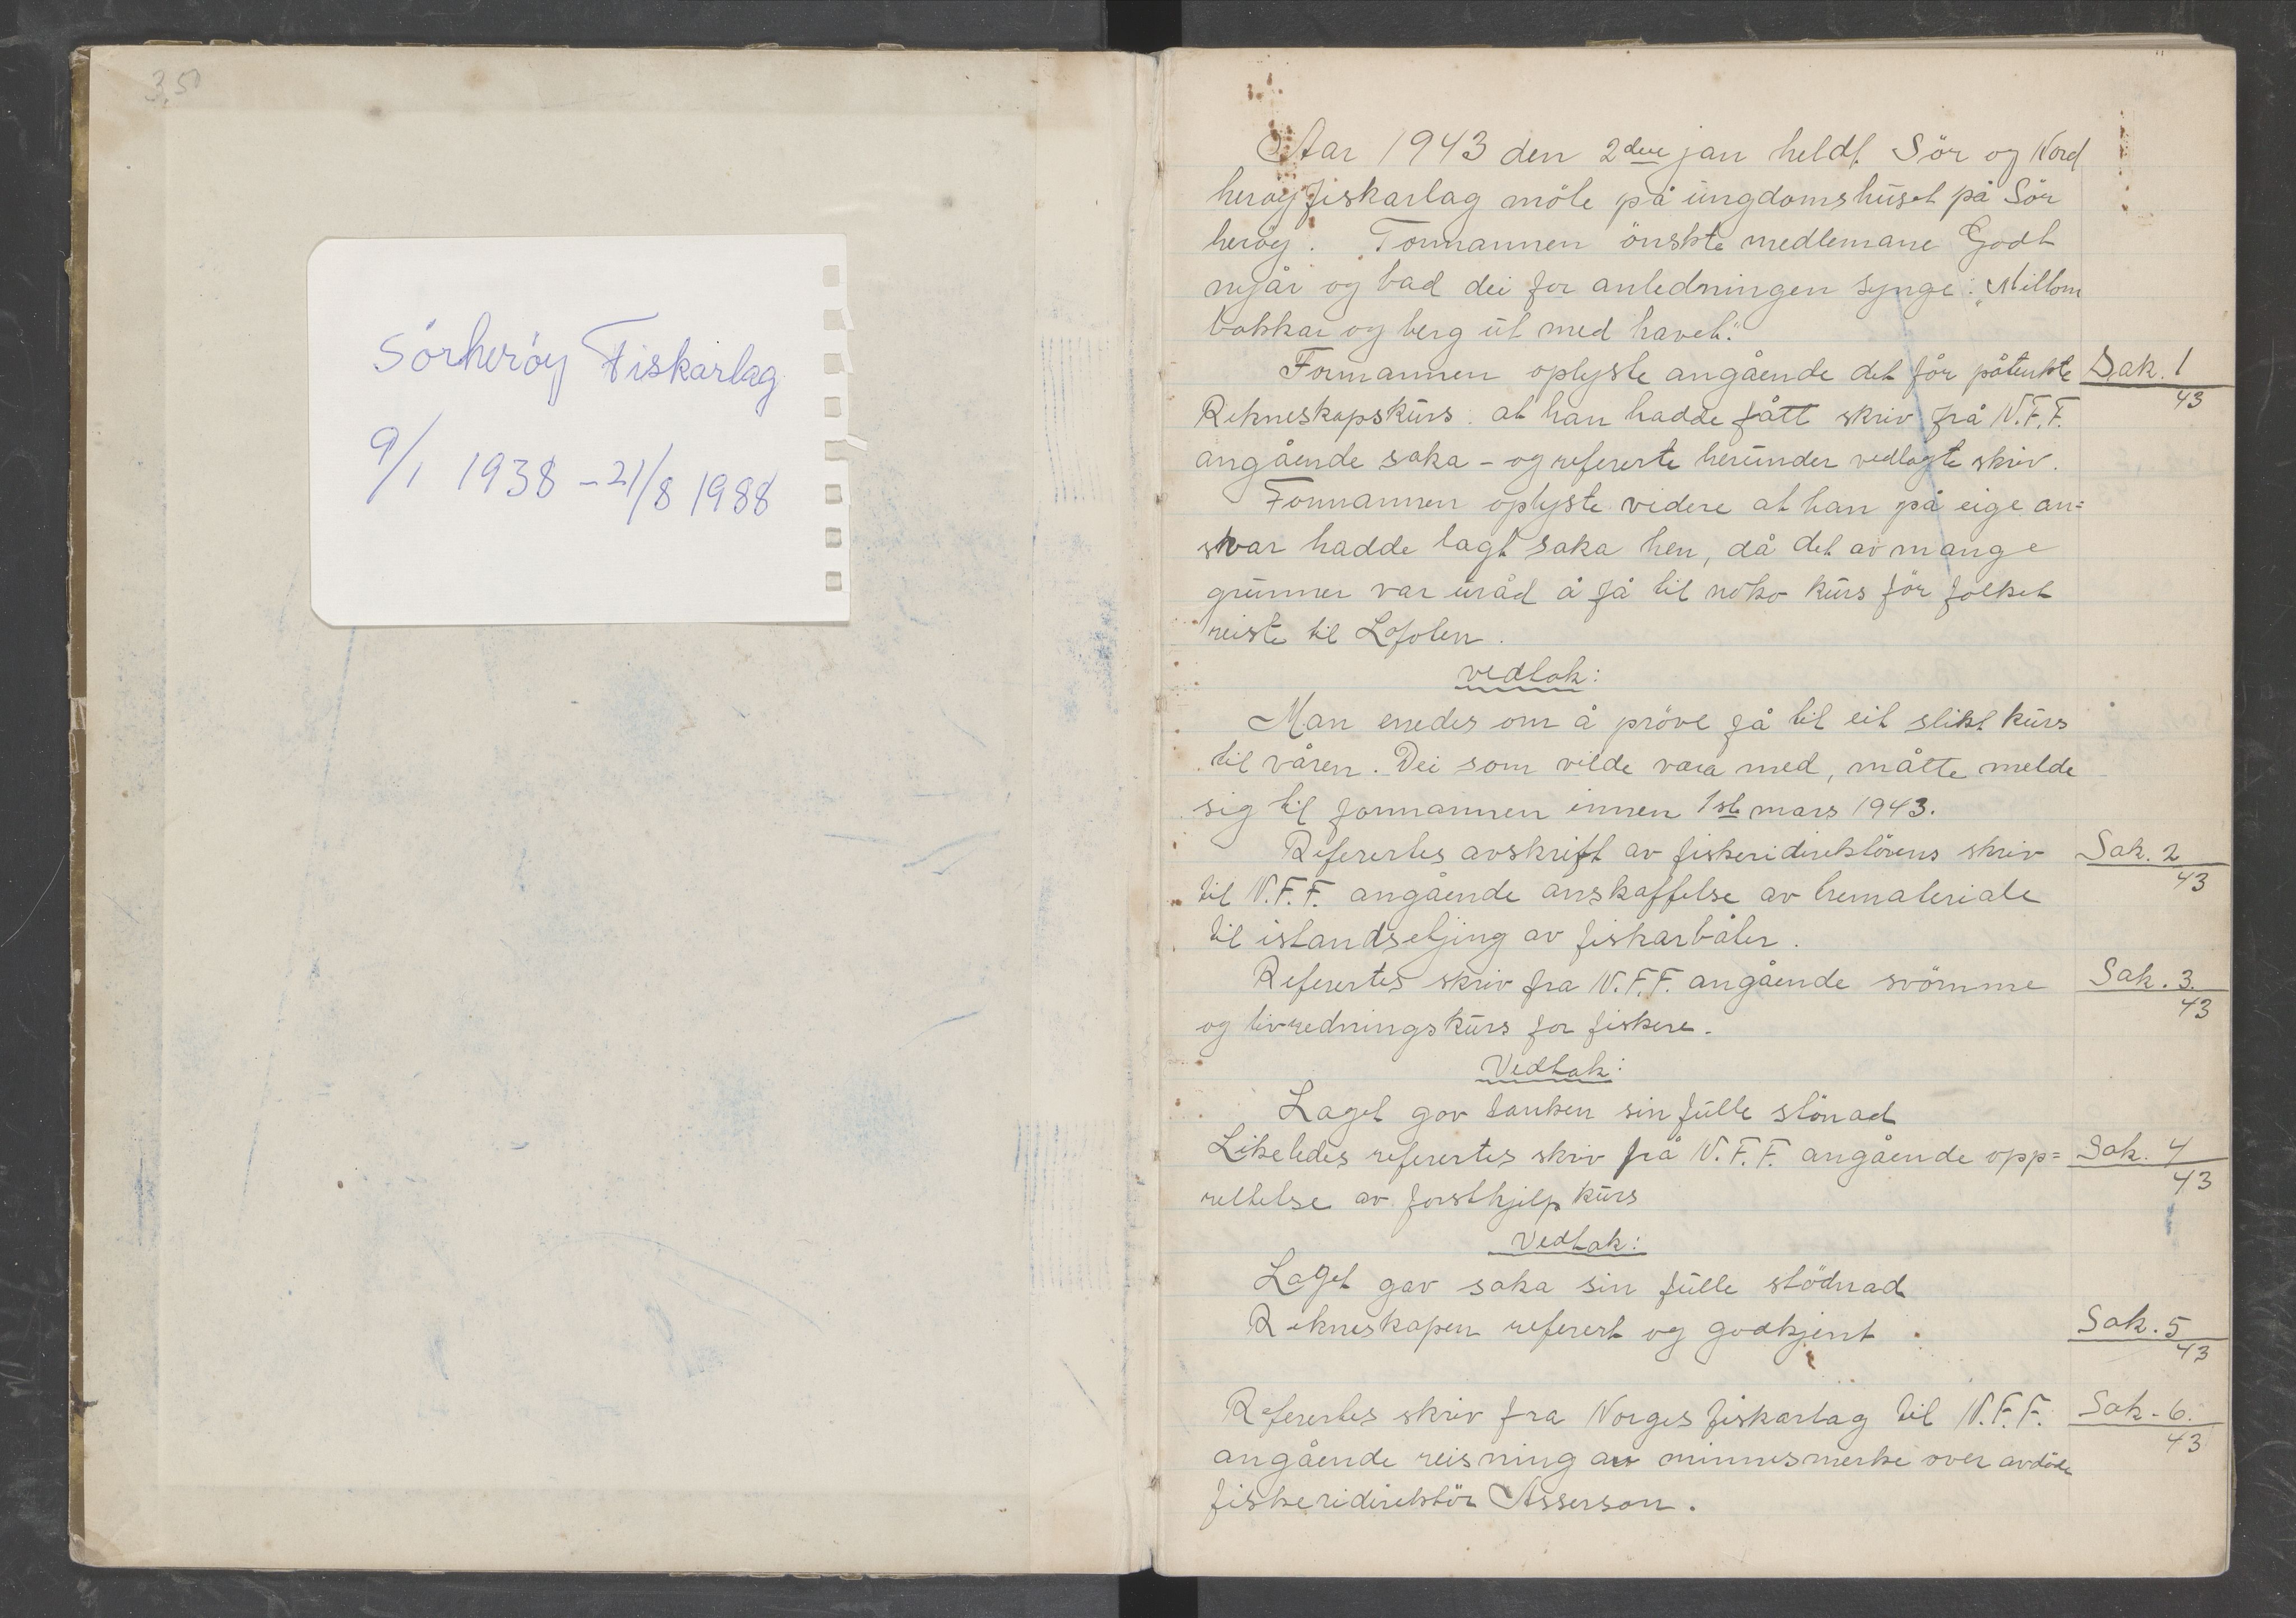 3,50
Sörheröy Fiskarlag
9/1 1938 – 21/8 1988
Aar 1943 den 2dre jan heldt Sör og Nord
heröy fiskarlag möte på ungdomshuset på Sör
heröy. Formannen önskte medlemane Godt
nyår og bad dei for anledningen synge: "Millom
bakkar og berg ut med havet."
Formannen oplyste angående det för påtenkte
Sak. 1/43
Rekneskapskurs: at han hadde fått skriv frå N.F.F.
angående saka – og refererte herunder vedlagte skriv.
Formannen oplyste videre at han på eige an=
svar hadde lagt saka hen, då det av mange
grunner var uråd å få til noko kurs för folket
reiste til Lofoten.
vedtak:
Man enedes om å pröve få til eit slikt kurs
til våren. Dei som vilde vara med, måtte melde
sig til formannen innen 1ste mars 1943.
Refertes avskrift av fiskeridirektörens skriv
Sak. 2/43
til N.F.F. angående anskaffelse av tremateriale
til istandsetjing av fiskarbåter.
Referertes skriv fra N.F.F. angående svömme
Sak. 3./43
og livredningskurs for fiskere.
Vedtak:
Laget gav tanken sin fulle stönad
Likeledes referertes skriv frå N.F.F. angående opp=
Sak. 4/43
rettelse av forsthjelp kurs
Vedtak:
Laget gav saka sin fulle stödnad
Rekneskapen referert og godkjent.
Sak. 5/43
Referertes skriv fra Norges fiskarlag til N.F.F.
Sak - 6./43
angående reisning av minnesmerke over avdöde
fiskeridirektör Asserson.